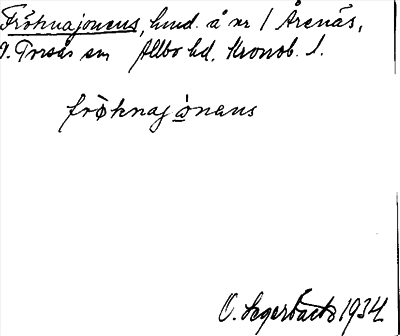 Fröknajonens, hmd. å nr 1 Årenäs,
Torsås sn Allbo hd. Kronob. l.
fröknajònens
O. Segerbäck 1934